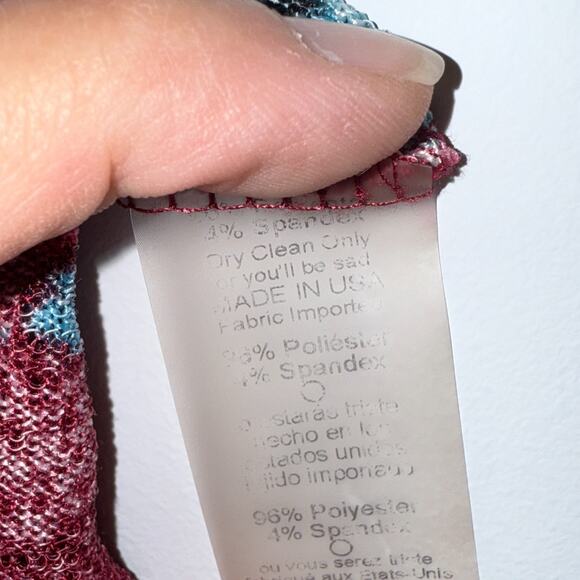 4% Spandex
Dry Clean Only
or you'll be sad
MADE IN USA
Fabric Imported
96% Poliéster
4% Spandex
o estarás triste
hecho en los
estados unidos
tejido importado
96% Polyester
4% Spandex
ou vous serez triste
fabriqué aux États-Unis